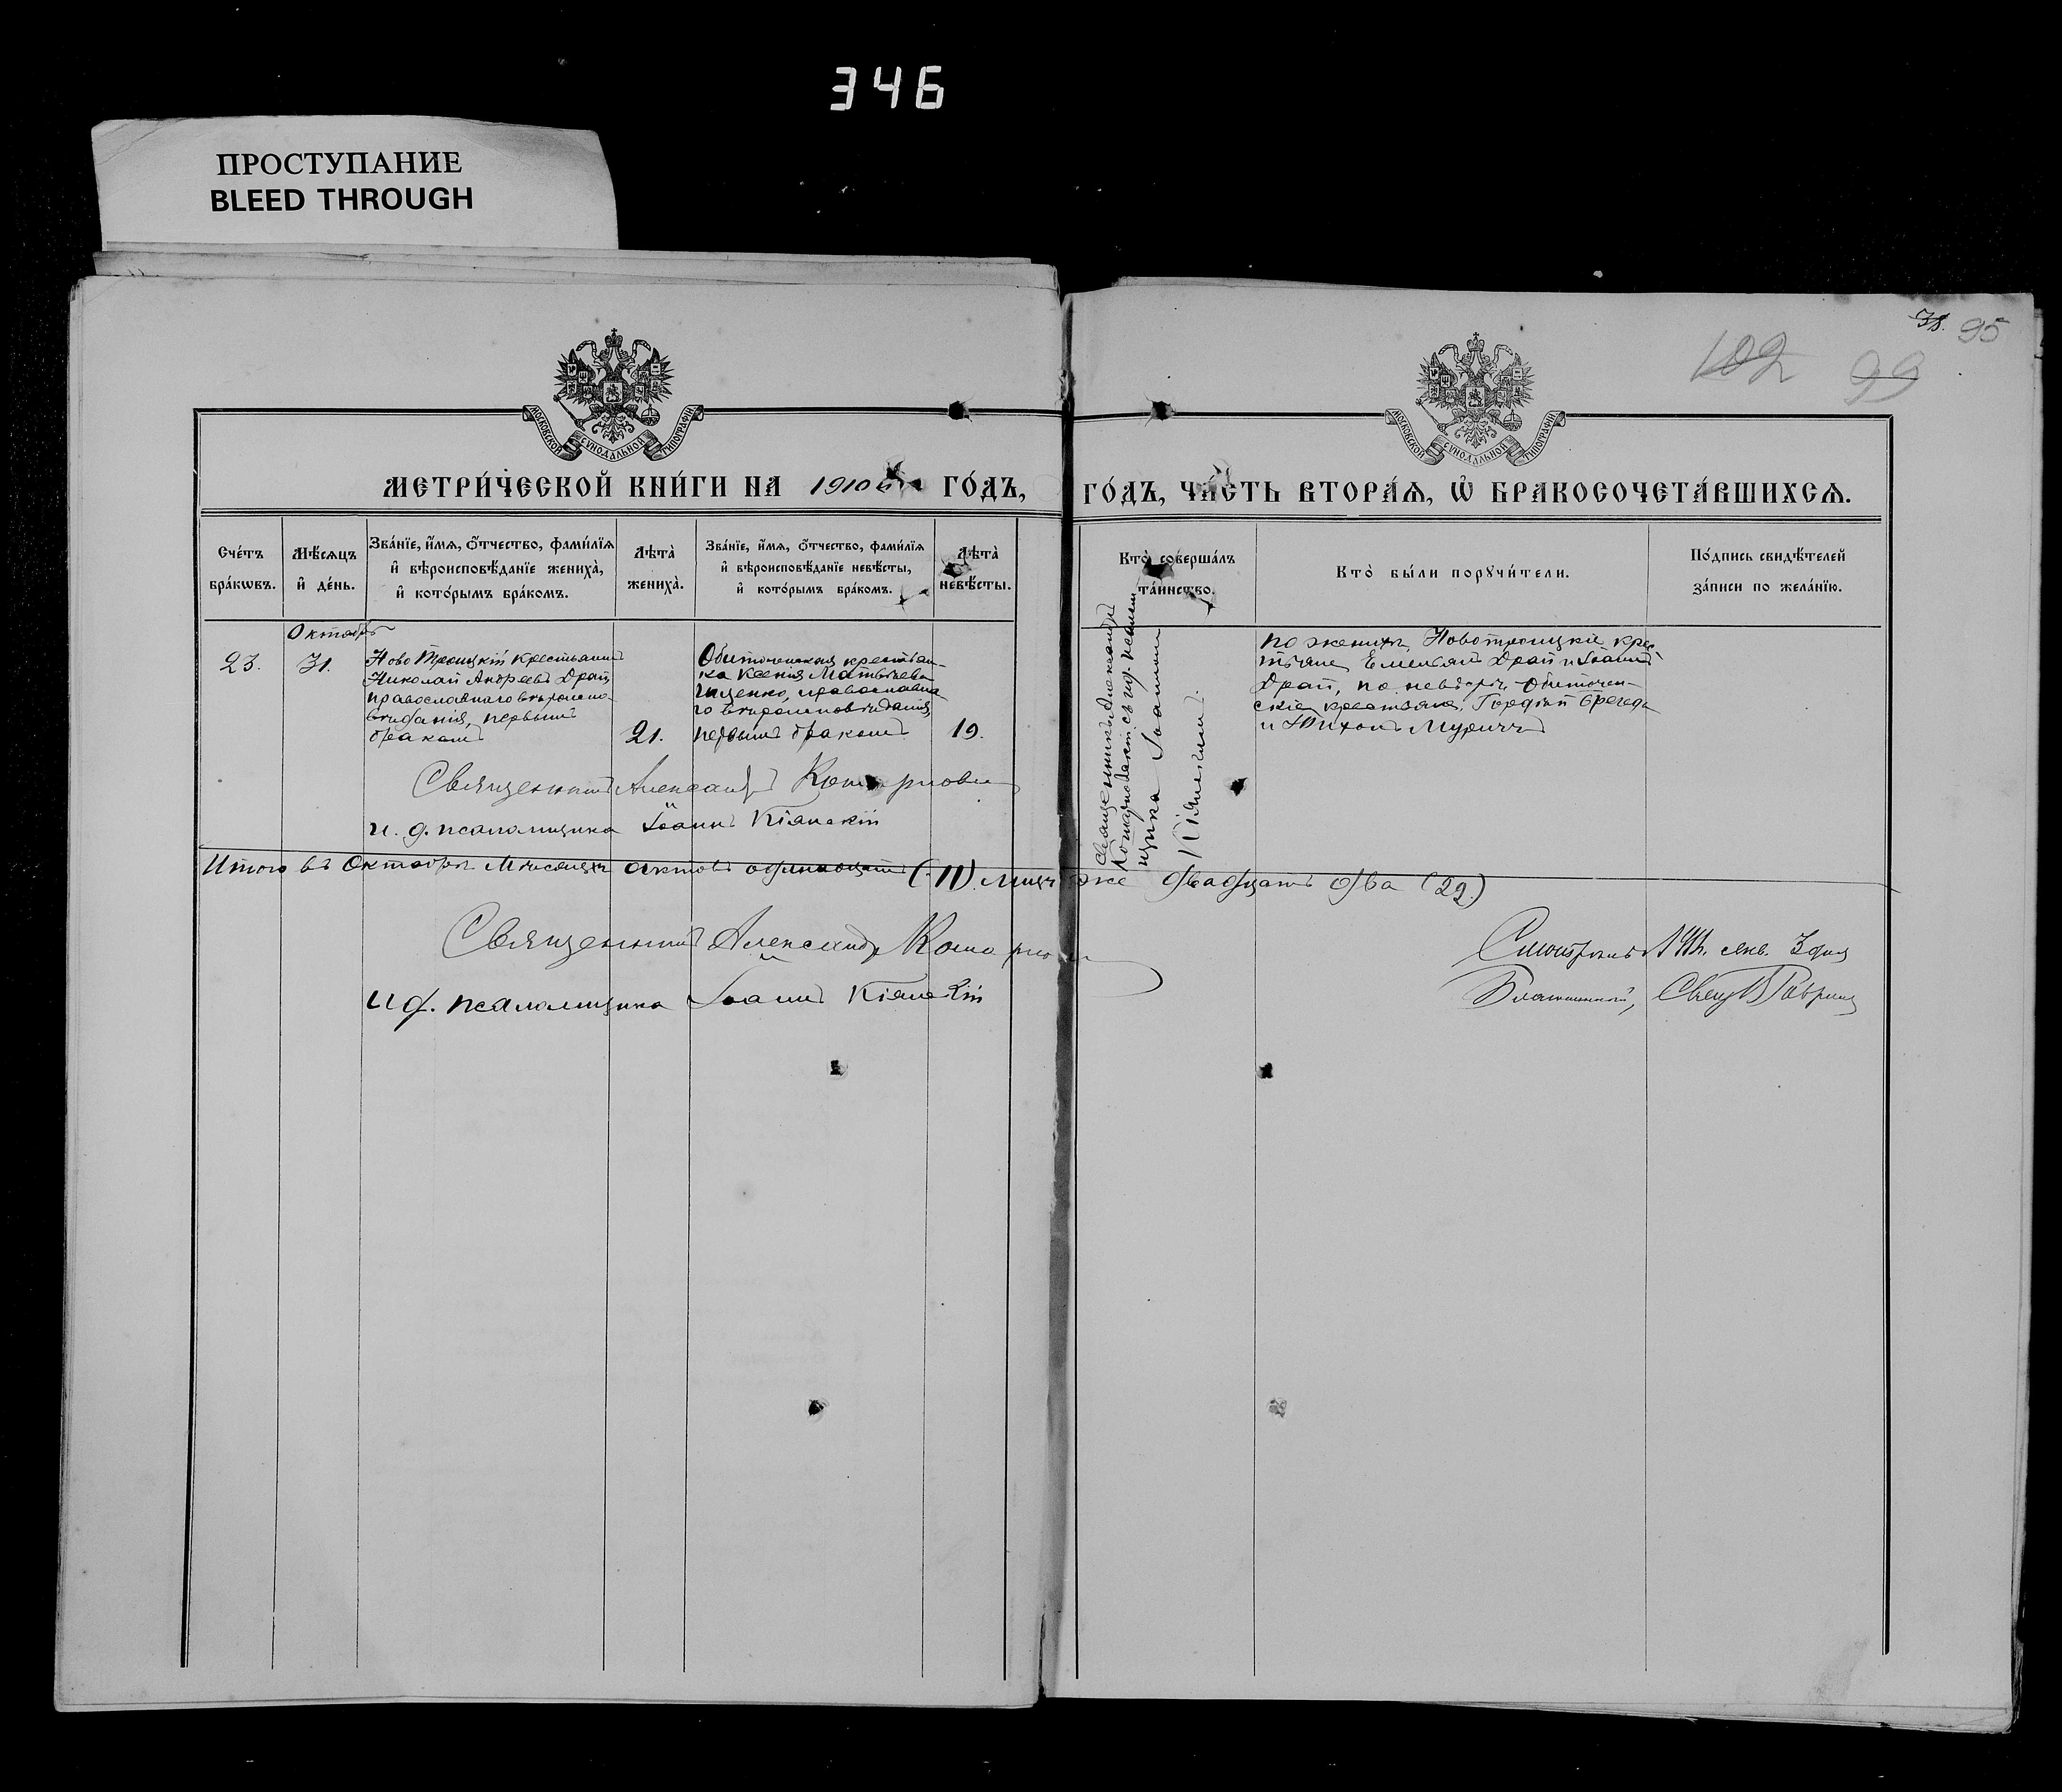 346
ПРОСТУПАНИЕ
BLEED THROUGH
38. 95
102 99
МОСКОВСКОЙ СѴНОДАЛЬНОЙ ТИПОГРАФІИ
МОСКОВСКОЙ СѴНОДАЛЬНОЙ ТИПОГРАФІИ
МЕТРИ́ЧЕСКОЙ КНИ́ГИ НА 1910 ГО́ДЪ,
ГО́ДЪ, ЧА́СТЬ ВТОРА́Ѧ, Ѽ БРАКОСОЧЕТА́ВШИХСѦ.
Сче́тъ
бра́кѡвъ.
Мѣ́сѧцъ
и҆ де́нь.
Зва́нїе, и҆́мѧ, ѻ҆́тчество, фами́лїѧ
и҆ вѣроисповѣ́данїе жениха̀,
и҆ кото́рымъ бра́комъ.
Лѣ́та
жениха̀.
Зва́нїе, и҆́мѧ, ѻ҆́тчество, фами́лїѧ
и҆ вѣроисповѣ́данїе невѣ́сты,
и҆ кото́рымъ бра́комъ.
Лѣ́та
невѣ́сты.
Кто̀ соверша́лъ
та́инство.
Кто̀ бы́ли порꙋчи́тели.
По́дпись свидѣ́телей
за́писи по жела́нїю.
Октябрь
23.
31.
Ново Троицкій крестьянинъ
Николай Андреевъ Драй
православнаго вѣроиспо-
вѣданія, первымъ
бракомъ
21.
Обиточенская крестьян-
ка Ксенія Матвѣева
православна
го вѣроисповѣданія,
первымъ бракомъ
19.
Священникъ Александръ
съ и.д. псалом
щика Іоанном
Кіянскимъ.
по женихѣ, Новотроицкіе крес
тьяне Емельянъ Драй и Іоаннъ
Драй, по невѣстѣ Обиточен-
скіе крестьяне, Гордѣй
и Тихонъ
Священникъ Александръ
и. д. псаломщика Іоаннъ Кіянскій
Итого въ Октябрѣ мѣсяцѣ актовъ одинадцать (11) лицъ же двадцать два (22.)
Священникъ Александръ
и д. псаломщика Іоаннъ Кіянскій
Смотрѣлъ 1911. янв. 3 дня
Благочинный, Свящ